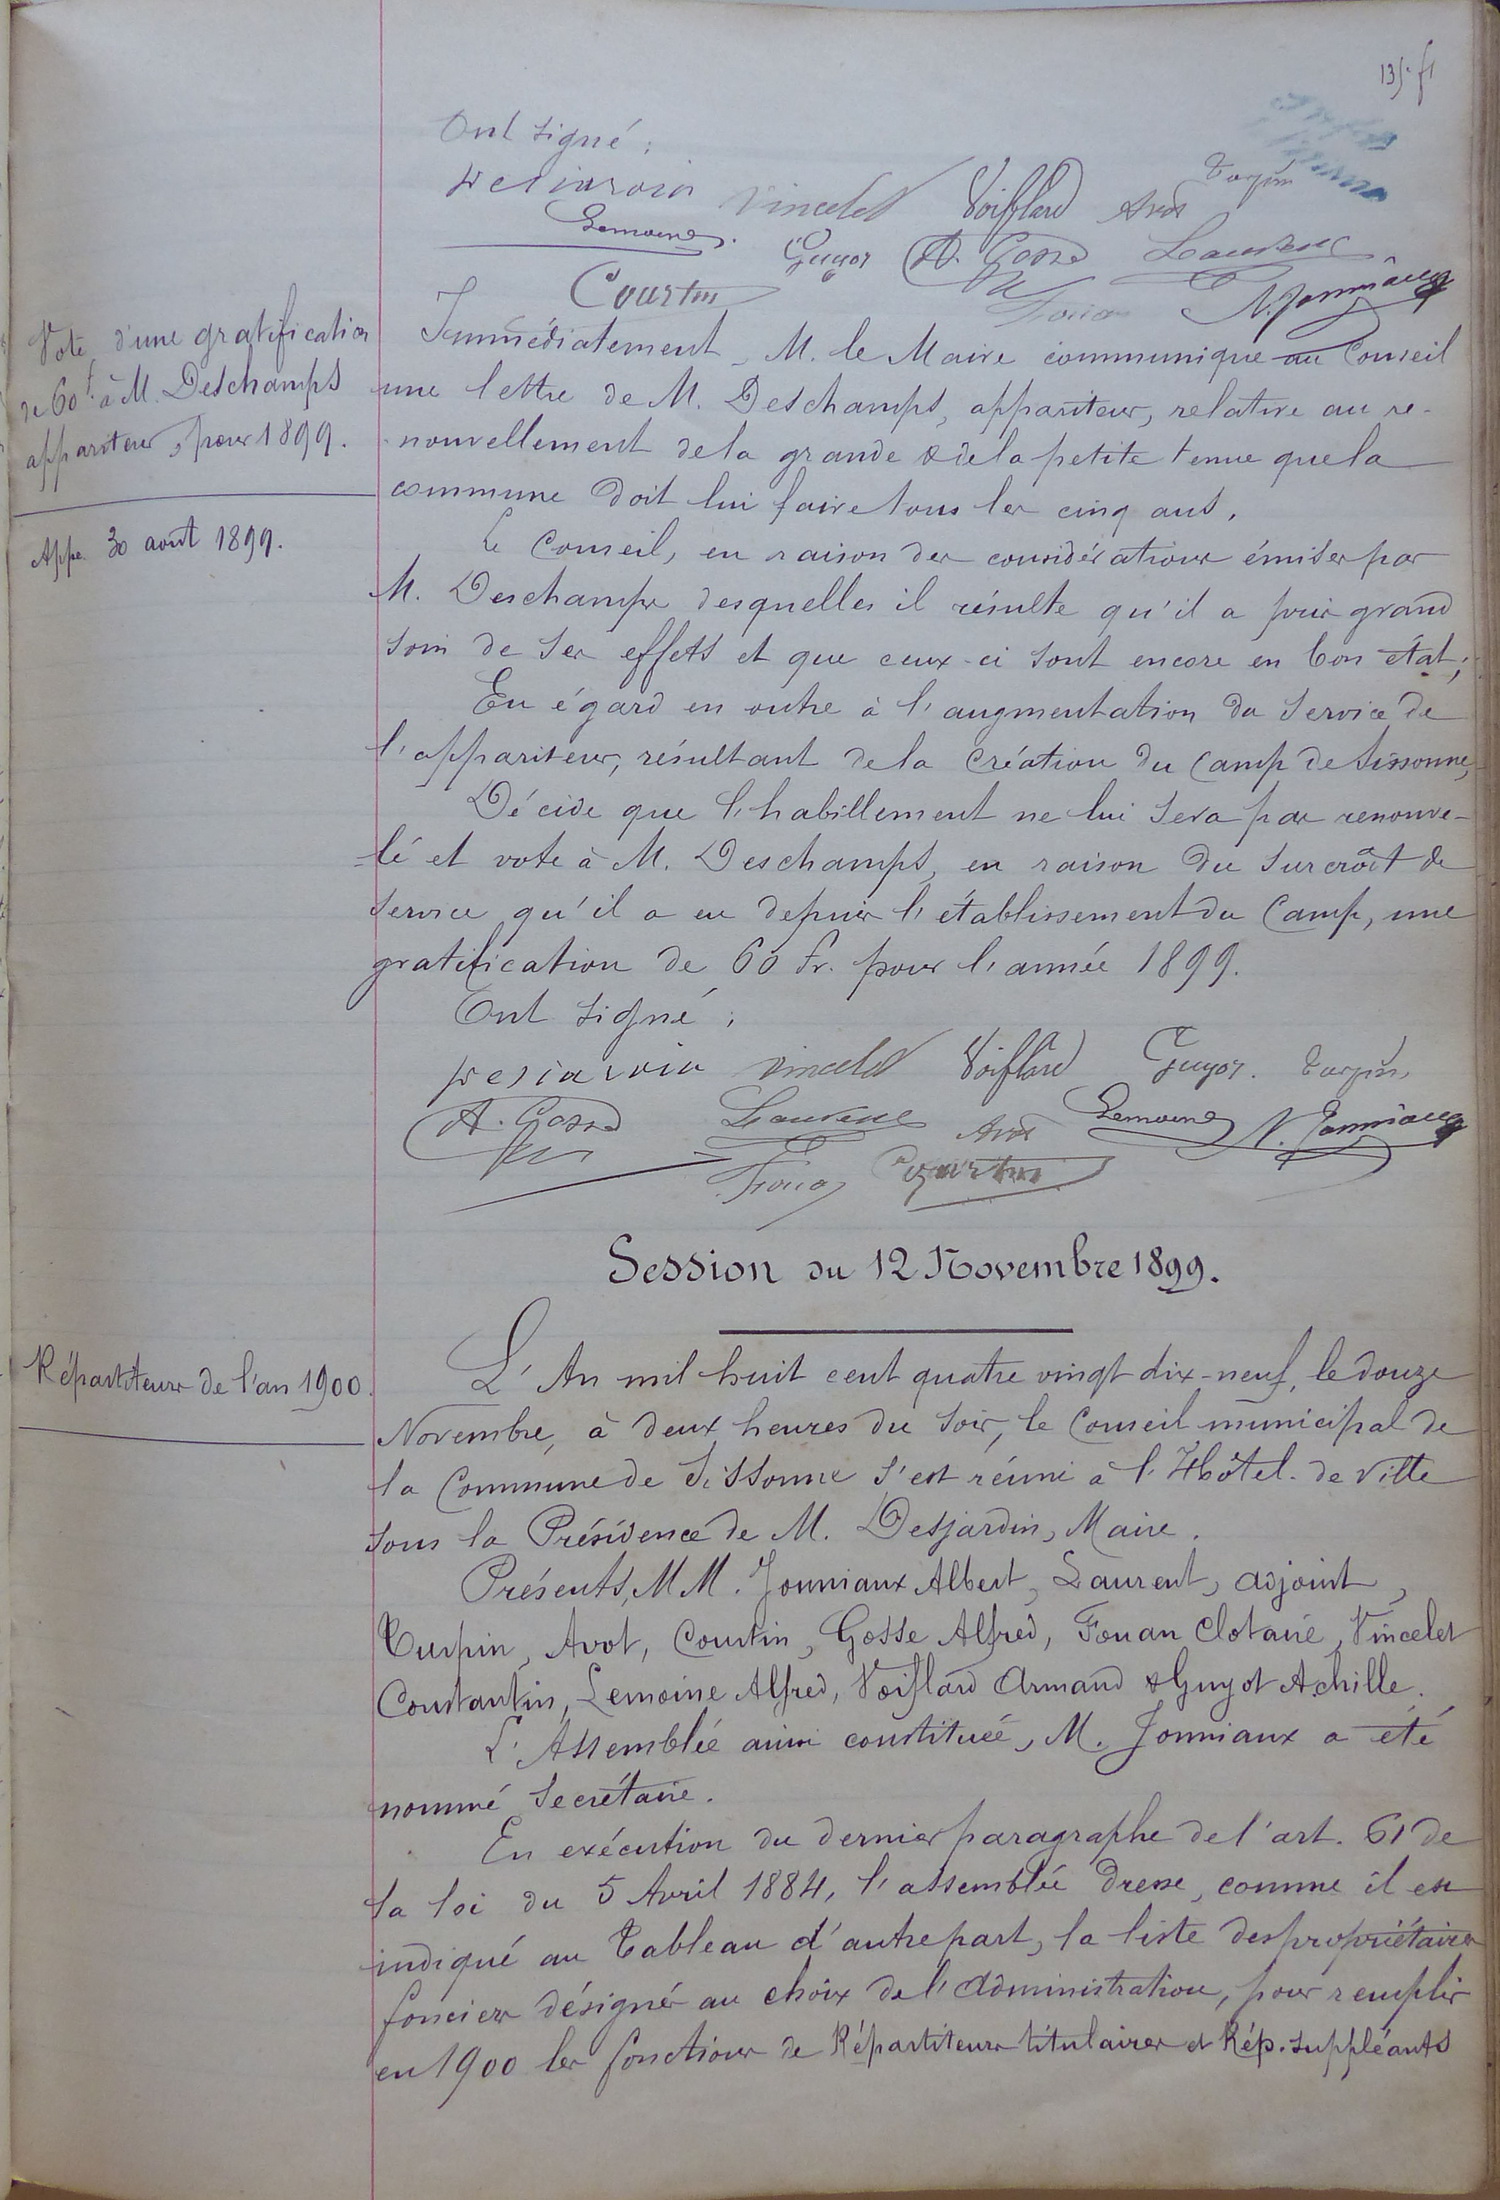 Ont signé :
Desjardin Vincelet Voiflard Avot Turpin
Lemoine Guyot A. Gosse Laurent
Courtin Fouan A. Jonniaux
Vote d'une gratification
de 60f à M. Deschamps
appariteur, pour 1899.
Appé 30 août 1899.
Immédiatement M. le Maire communique au Conseil
une lettre de M. Deschamps, appariteur, relative au re-
nouvellement de la grande & de la petite tenue que la
commune doit lui faire tous les cinq ans.
Le Conseil, en raison des considérations émises par
M. Deschamps desquelles il résulte qu'il a pris grand
soin de ses effets et que ceux-ci sont encore en bon état;
Eu égard en outre à l'augmentation du service de
l'appariteur, résultant de la création du Camp de Sissonne,
Décide que l'habillement ne lui sera pas renouve-
lé et vote à M. Deschamps, en raison du surcroît de
service qu'il a eu depuis l'établissement du Camp, une
gratification de 60 fr. pour l'année 1899.
Ont signé :
Desjardin Vincelet Voiflard Guyot. Turpin
A. Gosse Laurent Avot Lemoine A. Jonniaux
Fouan Courtin
Session du 12 Novembre 1899.
Répartiteurs de l'an 1900.
L'An mil huit cent quatre vingt dix-neuf, le douze
Novembre, à deux heures du soir, le Conseil municipal de
la Commune de Sissonne s'est réuni à l'Hôtel-de Ville
sous la Présidence de M. Desjardin, Maire.
Présents, MM. Jonniaux Albert, Laurent, adjoint,
Turpin, Avot, Courtin, Gosse Alfred, Fouan Clotaire, Vincelet
Constantin, Lemoine Alfred, Voiflard Armand & Guyot Achille.
L'Assemblée ainsi constituée, M. Jonniaux a été
nommé Secrétaire.
En exécution du dernier paragraphe de l'art. 61 de
la loi du 5 Avril 1884, l'assemblée dresse, comme il est
indiqué au Tableau d'autre part, la liste des propriétaires
fonciers désignés au choix de l'Administration, pour remplir
en 1900 les fonctions de Répartiteurs titulaires et Rép. suppléants